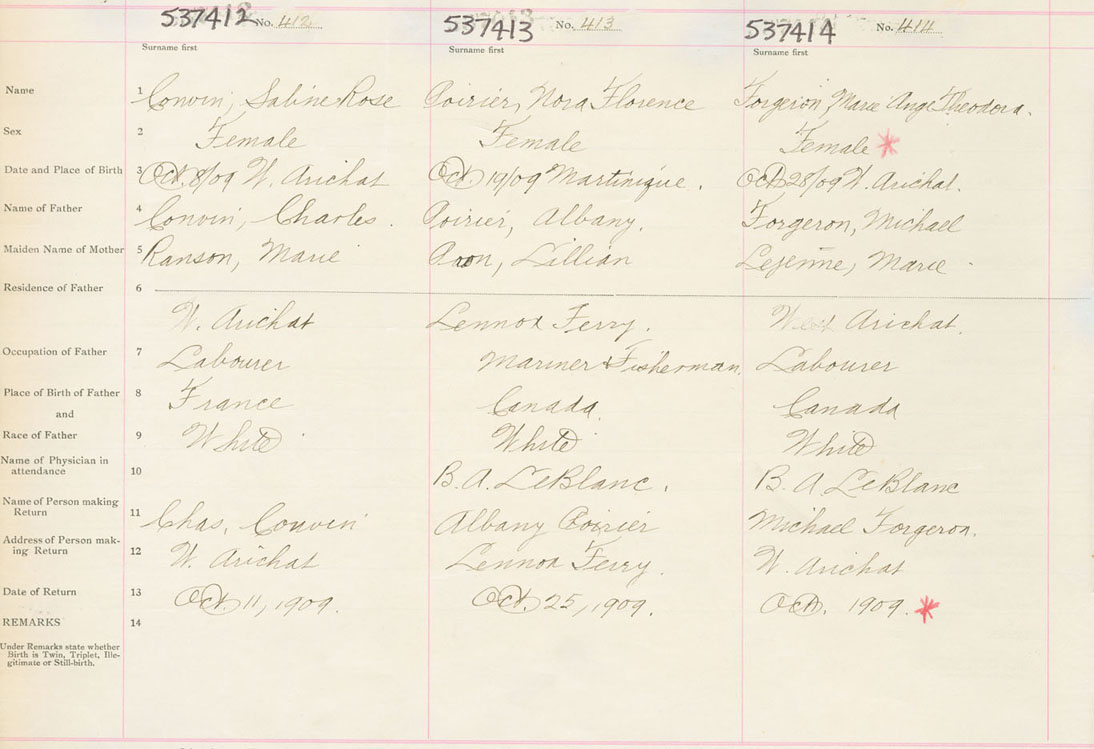 537412 No. 412 537413 No. 413 537414 No. 414
Surname first Surname first Surname first
Name 1 Convin, Sabine Rose Poirier, Nora Florence Forgeron, Marie Ange Theodora.
Sex 2 Female Female Female *
Date and Place of Birth 3 Oct. 8/09 W. Arichat Oct. 19/09 Martinique. Oct 28/09 W. Arichat.
Name of Father 4 Convin, Charles. Poirier, Albany. Forgeron, Michael
Maiden Name of Mother 5 Ranson, Marie Lillian Marie
Residence of Father 6
W. Arichat Lennox Ferry. West Arichat.
Occupation of Father 7 Labourer Mariner & Fisherman. Labourer
Place of Birth of Father 8 France Canada. Canada
and
Race of Father 9 White White White
Name of Physician in
attendance 10 B. A. LeBlanc. B. A LeBlanc
Name of Person making
Return 11 Chas. Convin Albany Poirier Michael Forgeron.
Address of Person mak-
ing Return 12 W. Arichat Lennox Ferry. W. Arichat
Date of Return 13 Oct 11, 1909. Oct. 25, 1909. Oct. 1909. *
REMARKS 14
Under Remarks state whether
Birth is Twin, Triplet, Ille-
gitimate or Still-birth.